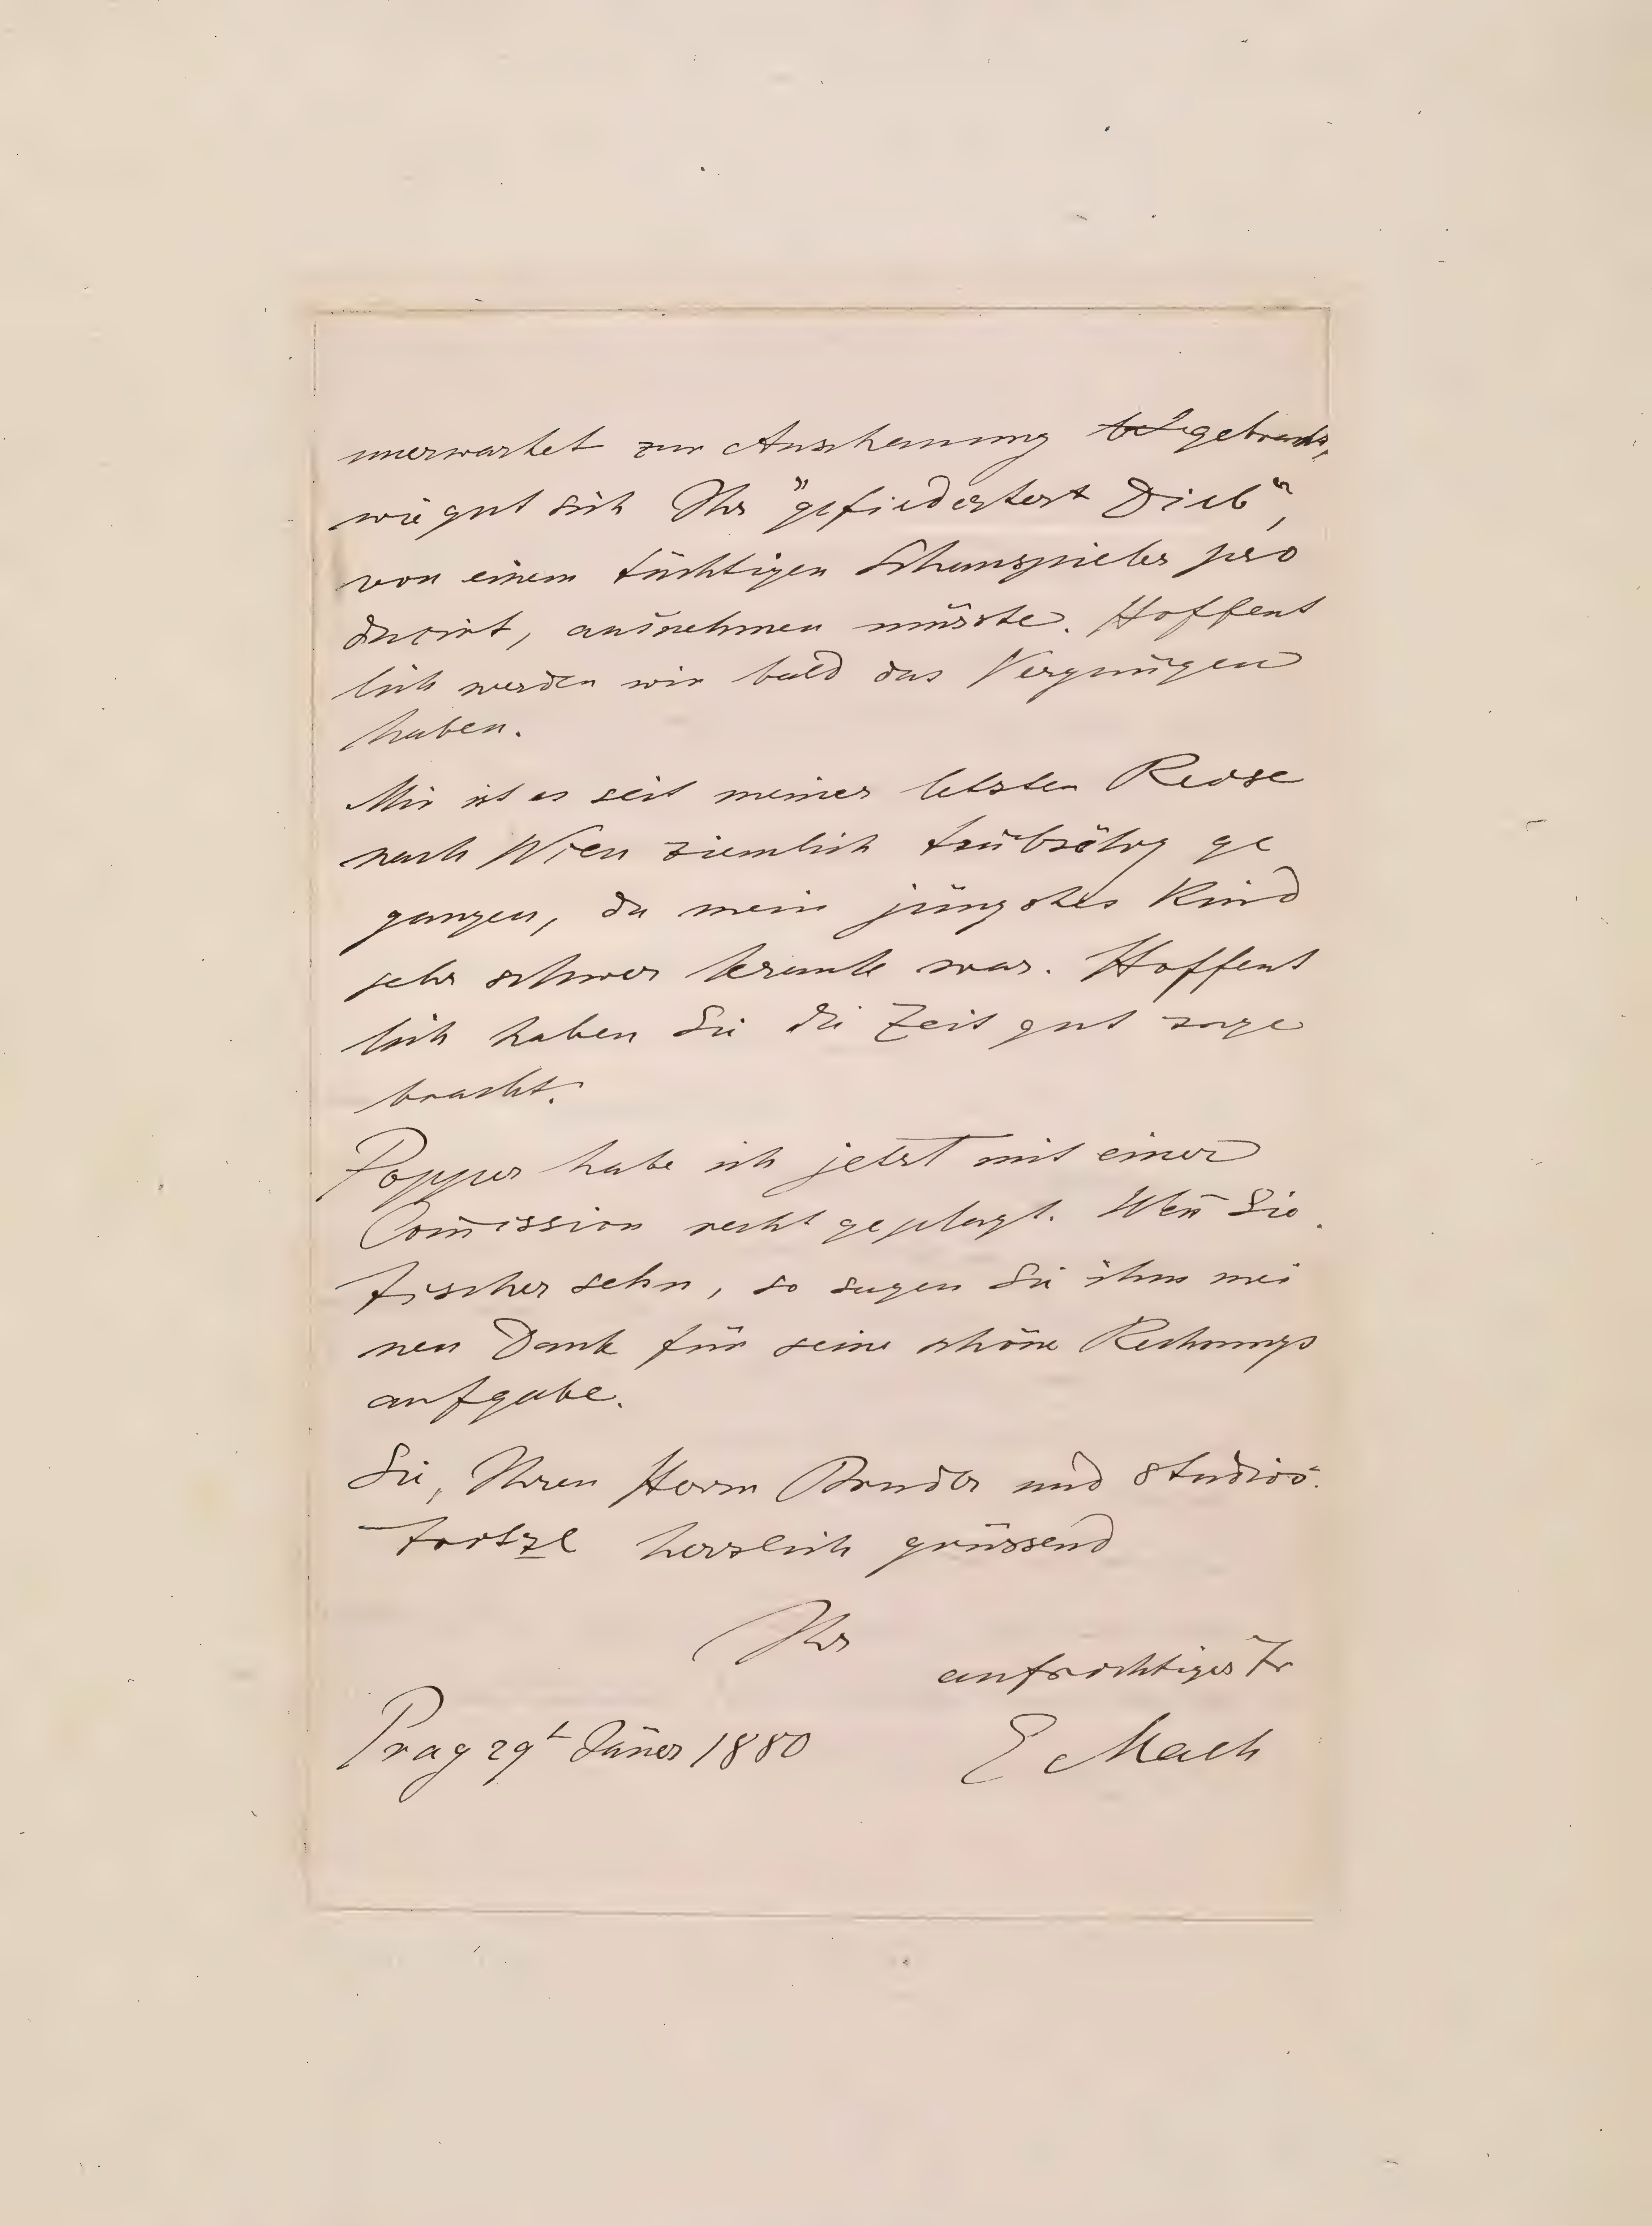 unerwartet zur Anschauung gebracht,
wie gut sich Ihr "gefiederter Dieb",
von einem tüchtigen Schauspieler pro
ducirt, ausnehmen müsste. Hoffent
lich werden wir bald das Vergnügen
haben.
Mir ist es seit meiner letzten Reise
nach Wien ziemlich trübsälig ge
gangen, da mein jüngstes Kind
sehr schwer krank war. Hoffent
lich haben Sie die Zeit gut zuge
bracht.
Popper habe ich jetzt mit einer
Com̄ission recht geplagt. Wen̄ Sie
Fischer sehn, so sagen Sie ihm mei
nen Dank für seine schöne Rechnungs
aufgabe.
Sie, Ihren Herrn Bruder und Studios.
herzlich grüssend
Ihr
aufrichtiger Fr
Prag 29t Jäner 1880
E Mach